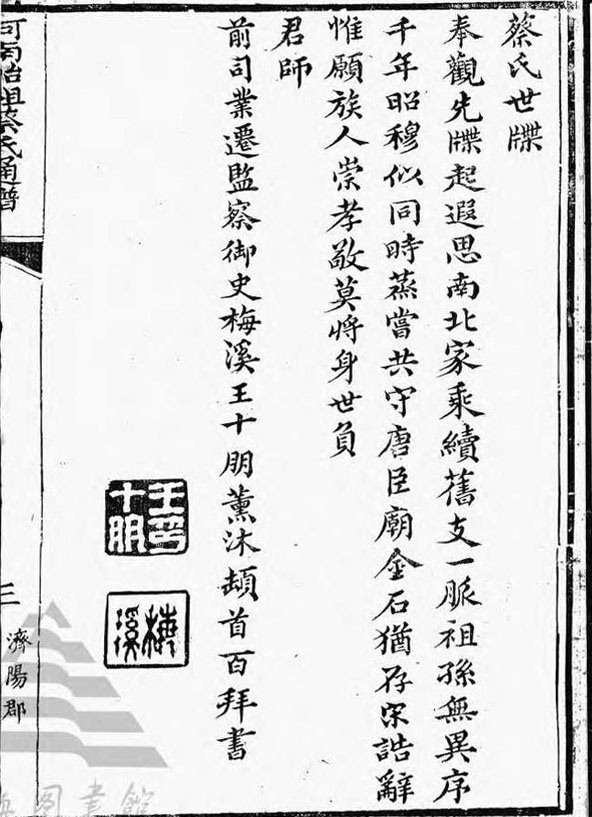 蔡氏世牒
奉觀先牒起遐思南北家乘續舊支一脈祖孫無異序
千年昭穆似同時蒸嘗共守唐臣廟金石猶存宋誥辭
惟願族人崇孝敬莫將身世負
君師
前司業遷監察御史梅溪王十朋薰沐頓首百拜書
王十朋印
梅溪
河南始祖蔡氏通譜
三
濟陽郡
圖書館